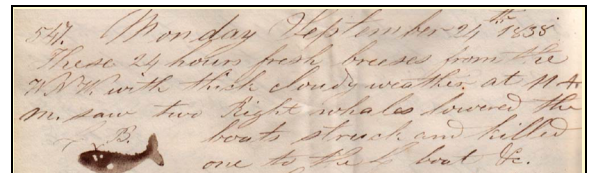 547. Monday September 24th 1838
These 24 hours fresh breeses from the
W.N.W. with thick cloudy weather. at 11 A.
m. saw two Right whales lowered the
B. boats struck and killed
one to the L boat &c.